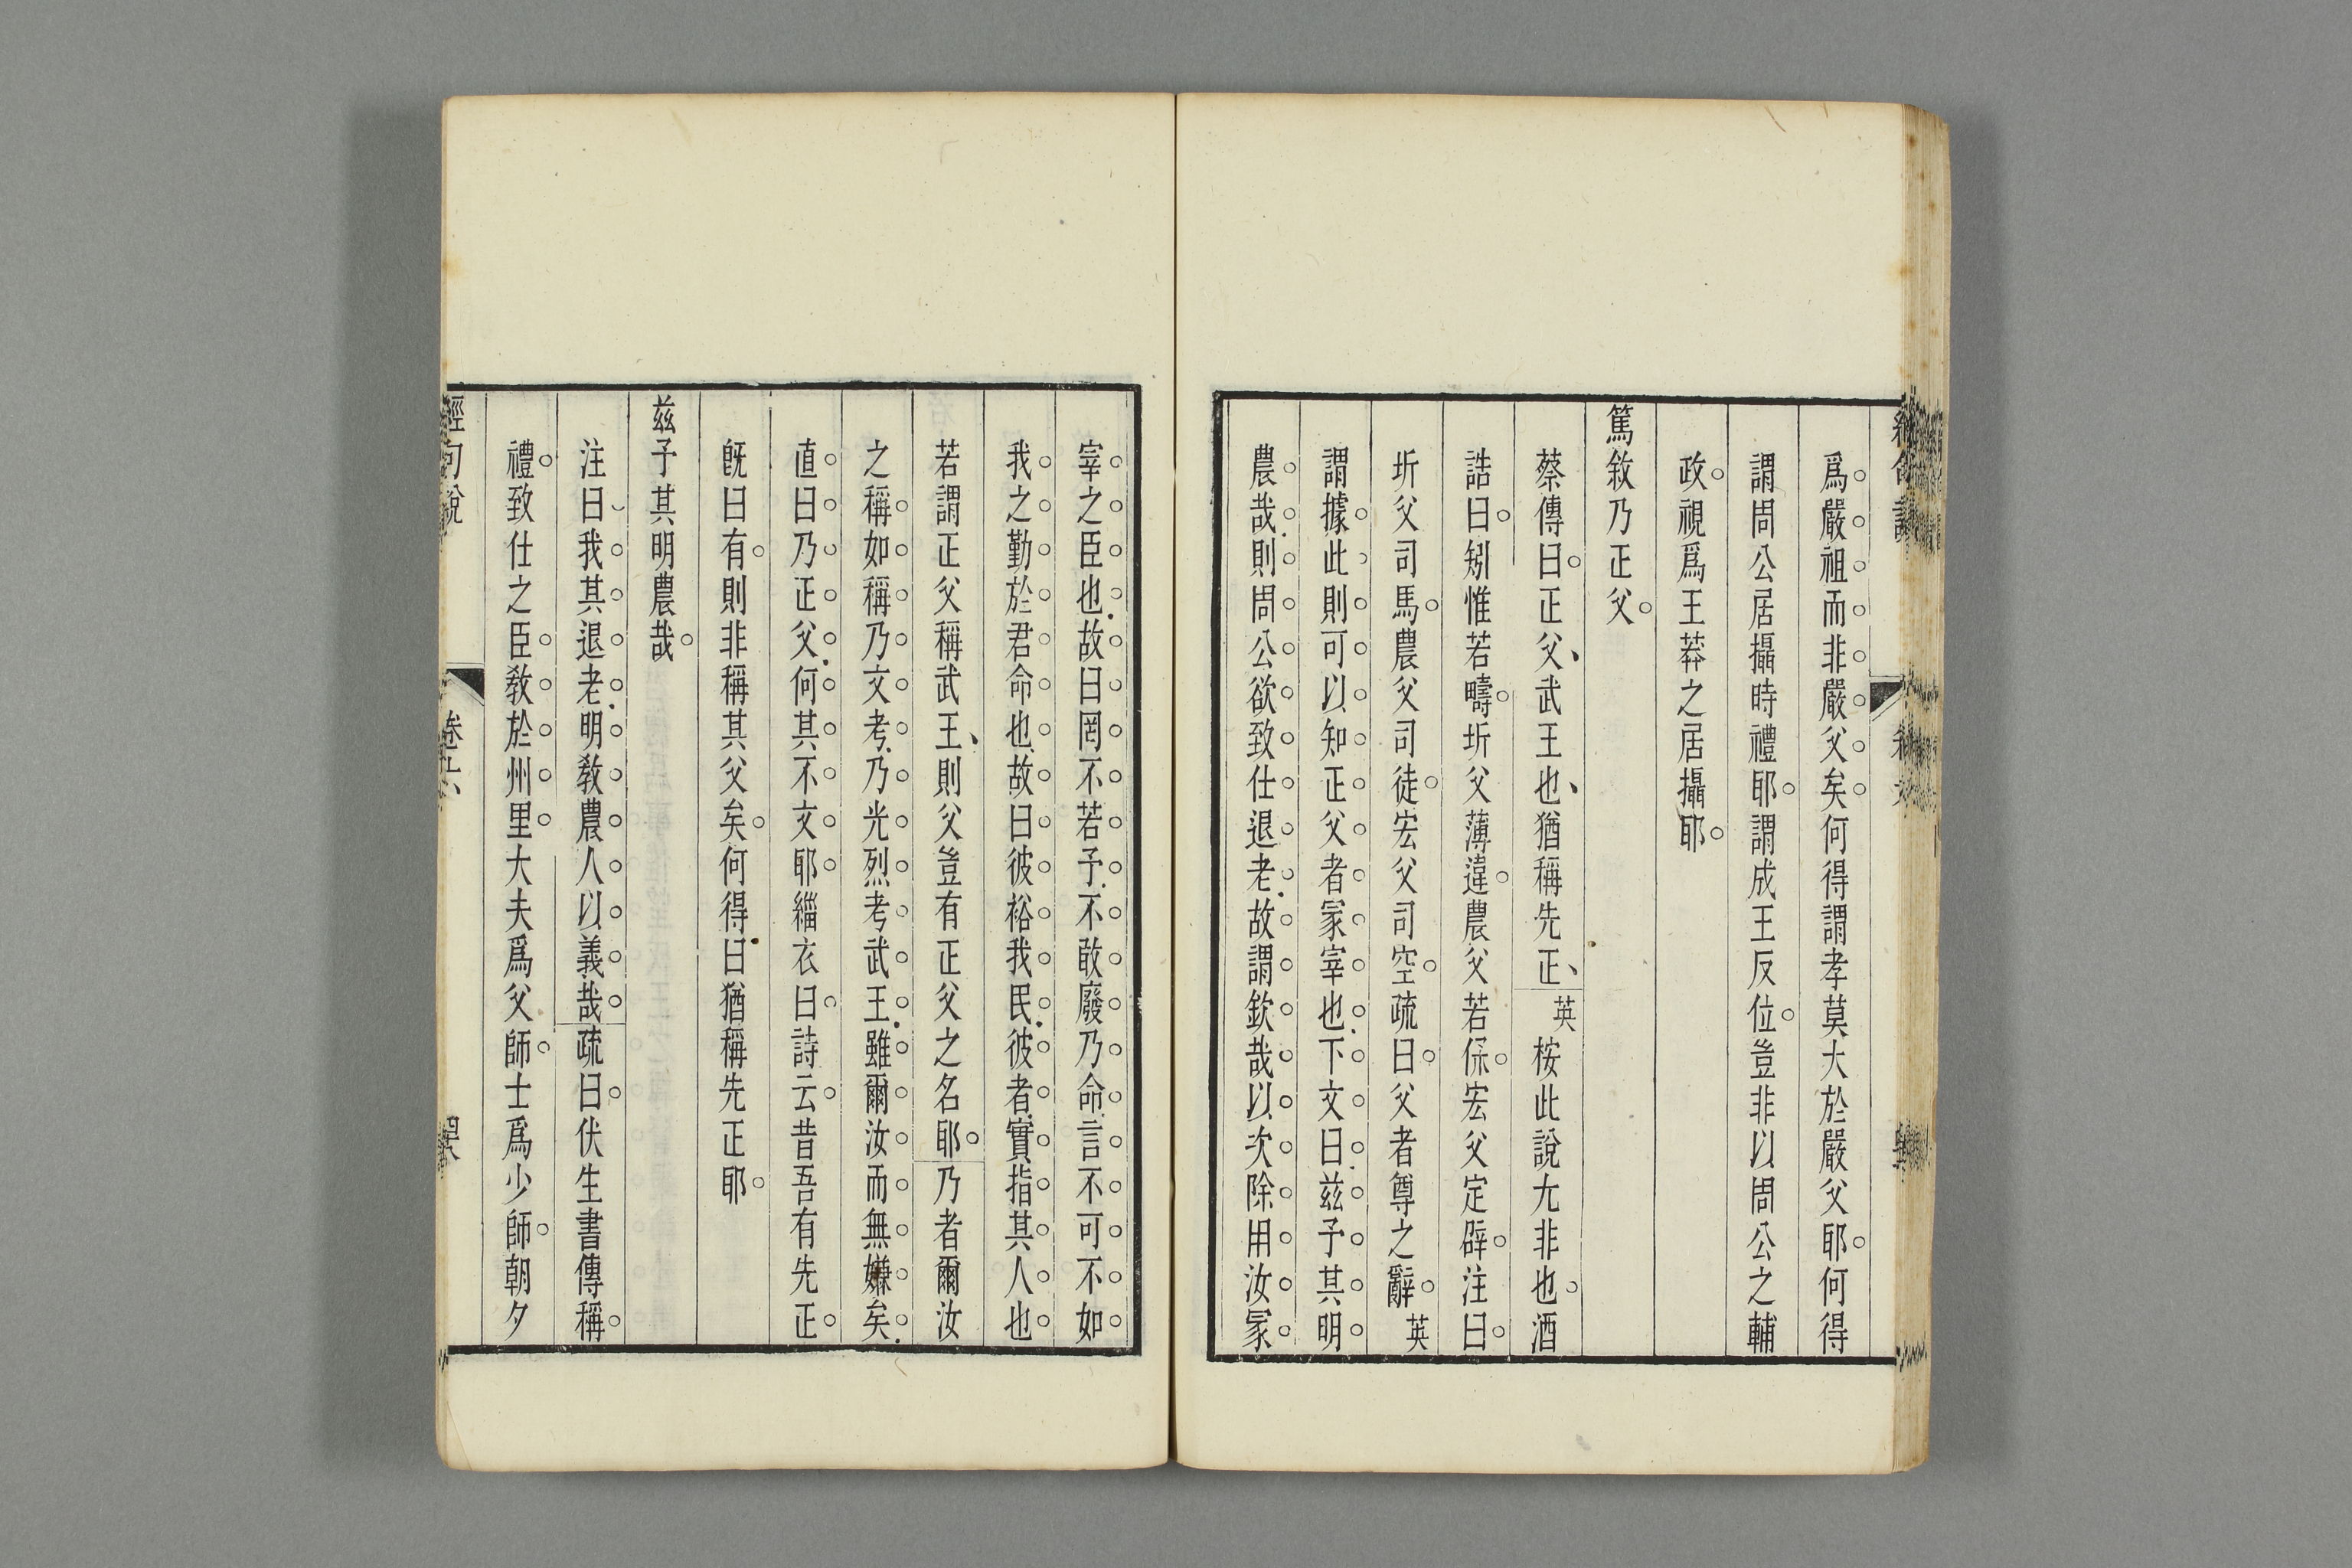 爲嚴祖而非嚴父矣何得謂孝莫大於嚴父耶何得
謂周公居攝時禮耶謂成王反位豈非以周公之輔
政視爲王莽之居攝耶
篤敘乃正父
蔡傳曰正父武王也猶稱先正英桉此說尢非也酒
誥曰矧惟若疇圻父薄違農父若保宏父定辟注曰
圻父司馬農父司徒宏父司空疏曰父者尊之辭英
謂據此則可以知正父者冢宰也下文曰兹予其明
農哉則周公欲致仕退老故謂欽哉以次除用汝冢
宰之臣也故曰罔不若予不敢廢乃命言不可不如
我之勤於君命也故曰彼裕我民彼者實指其人也
若謂正父稱武王則父豈有正父之名耶乃者爾汝
之稱如稱乃文考乃光烈考武王雖爾汝而無嫌矣
直曰乃正父何其不文耶緇衣曰詩云昔吾有先正
旣曰有則非稱其父矣何得曰猶稱先正耶
兹予其明農哉
注曰我其退老明敎農人以義哉疏曰伏生書傳稱
禮致仕之臣敎於州里大夫爲父師士爲少師朝夕
經句說 卷十六